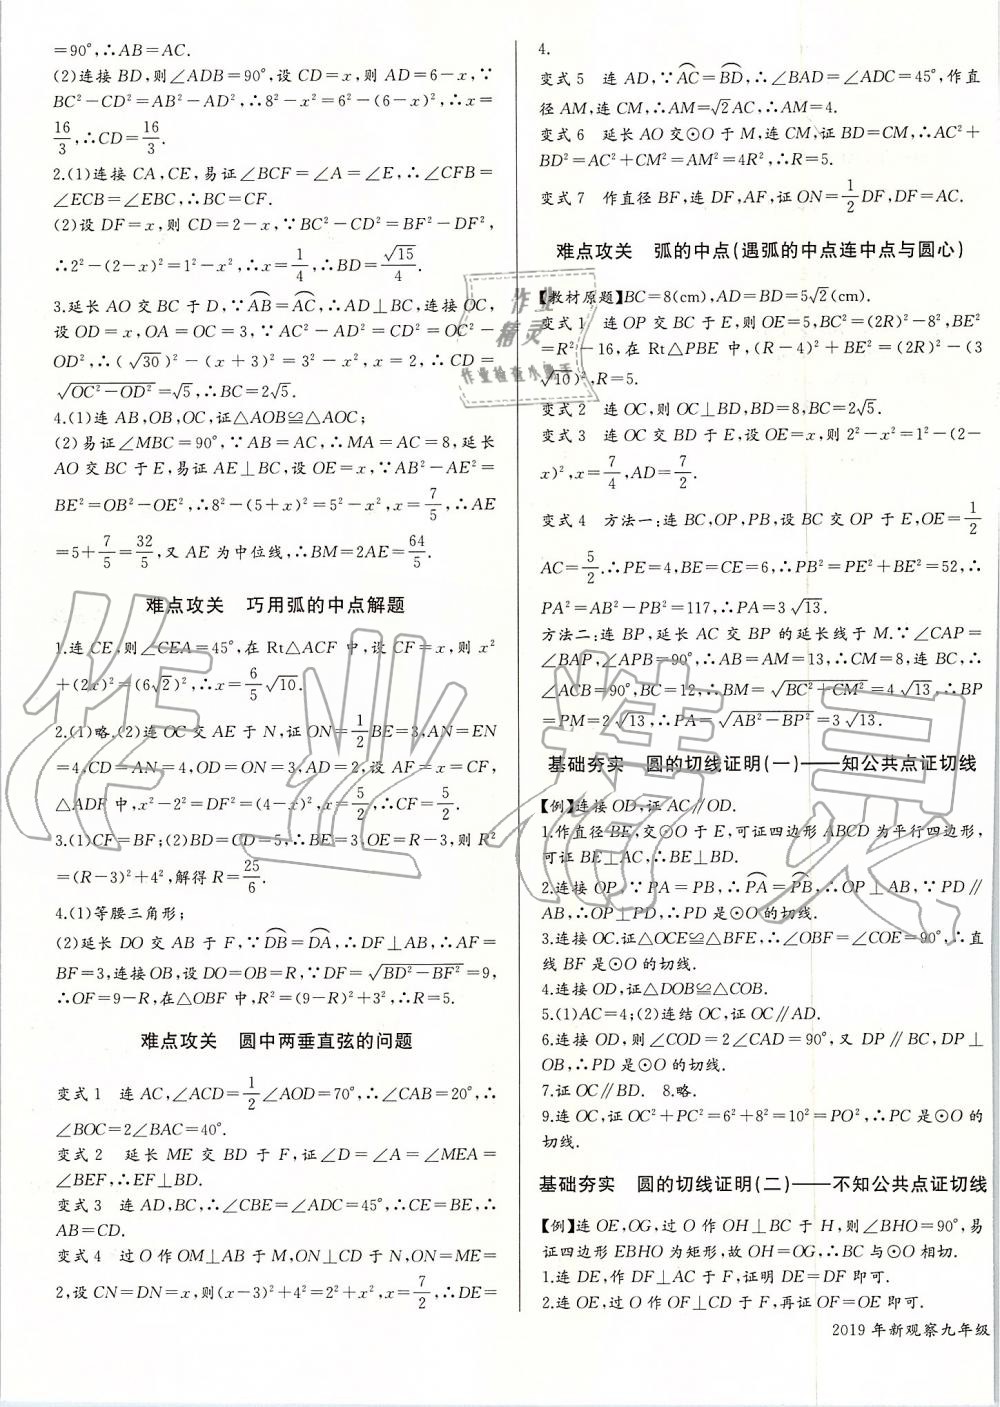 =90°,∴AB=AC.
(2)连接 BD,则∠ADB=90°,设 CD=x,则 AD=6-x,∵
BC²-CD²=AB²-AD²,∴8²-x²=6²-(6-x)²,∴x=
16/3,∴CD=16/3.
2.(1)连接 CA,CE,易证∠BCF=∠A=∠E,∴∠CFB=
∠ECB=∠EBC,∴BC=CF.
(2)设 DF=x,则 CD=2-x,∵BC²-CD²=BF²-DF²,
∴2²-(2-x)²=1²-x²,∴x=1/4,∴BD=√15/4.
3.延长 AO 交 BC 于 D,∵⌒AB=⌒AC,∴AD⊥BC,连接 OC,
设 OD=x,OA=OC=3,∵AC²-AD²=CD²=OC²-
OD²,∴(√30)²-(x+3)²=3²-x²,x=2,∴CD=
√(OC²-OD²)=√5,∴BC=2√5.
4.(1)连 AB,OB,OC,证△AOB≌△AOC;
(2)易证∠MBC=90°,∵AB=AC,∴MA=AC=8,延长
AO 交 BC 于 E,易证 AE⊥BC,设 OE=x,∵AB²-AE²=
BE²=OB²-OE²,∴8²-(5+x)²=5²-x²,x=7/5,∴AE
=5+7/5=32/5,又 AE 为中位线,∴BM=2AE=64/5.
难点攻关 巧用弧的中点解题
1.连 CE,则∠CEA=45°,在 Rt△ACF 中,设 CF=x,则 x²
+(2x)²=(6√2)²,∴x=6/5√10.
2.(1)略,(2)连 OC 交 AE 于 N,证 ON=1/2BE=3,AN=EN
=4,CD=AN=4,OD=ON=3,AD=2,设 AF=x=CF,
△ADF 中,x²-2²=DF²=(4-x)²,x=5/2,∴CF=5/2.
3.(1)CF=BF;(2)BD=CD=5,∴BE=3,OE=R-3,则 R²
=(R-3)²+4²,解得 R=25/6.
4.(1)等腰三角形;
(2)延长 DO 交 AB 于 F,∵⌒DB=⌒DA,∴DF⊥AB,∴AF=
BF=3,连接 OB,设 DO=OB=R,∵DF=√(BD²-BF²)=9,
∴OF=9-R,在△OBF 中,R²=(9-R)²+3²,∴R=5.
难点攻关 圆中两垂直弦的问题
变式 1 连 AC,∠ACD=1/2∠AOD=70°,∴∠CAB=20°,∴
∠BOC=2∠BAC=40°.
变式 2 延长 ME 交 BD 于 F,证∠D=∠A=∠MEA=
∠BEF,∴EF⊥BD.
变式 3 连 AD,BC,∴∠CBE=∠ADC=45°,∴CE=BE,∴
AB=CD.
变式 4 过 O 作 OM⊥AB 于 M,ON⊥CD 于 N,ON=ME=
2,设 CN=DN=x,则(x-3)²+4²=2²+x²,x=7/2,∴DE=
4.
变式 5 连 AD,∵⌒AC=⌒BD,∴∠BAD=∠ADC=45°,作直
径 AM,连 CM,∴AM=√2AC,∴AM=4.
变式 6 延长 AO 交⊙O 于 M,连 CM,证 BD=CM,∴AC²+
BD²=AC²+CM²=AM²=4R²,∴R=5.
变式 7 作直径 BF,连 DF,AF,证 ON=1/2DF,DF=AC.
难点攻关 弧的中点(遇弧的中点连中点与圆心)
【教材原题】BC=8(cm),AD=BD=5√2(cm).
变式 1 连 OP 交 BC 于 E,则 OE=5,BC²=(2R)²-8²,BE²
=R²-16,在 Rt△PBE 中,(R-4)²+BE²=(2R)²-(3
√10)²,R=5.
变式 2 连 OC,则 OC⊥BD,BD=8,BC=2√5.
变式 3 连 OC 交 BD 于 E,设 OE=x,则 2²-x²=1²-(2-
x)²,x=7/4,AD=7/2.
变式 4 方法一:连 BC,OP,PB,设 BC 交 OP 于 E,OE=1/2
AC=5/2.∴PE=4,BE=CE=6,∴PB²=PE²+BE²=52,∴
PA²=AB²-PB²=117,∴PA=3√13.
方法二:连 BP,延长 AC 交 BP 的延长线于 M.∵∠CAP=
∠BAP,∠APB=90°,∴AB=AM=13,∴CM=8,连 BC,∴
∠ACB=90°,BC=12,∴BM=√(BC²+CM²)=4√13,∴BP
=PM=2√13,∴PA=√(AB²-BP²)=3√13.
基础夯实 圆的切线证明(一)——知公共点证切线
【例】连接 OD,证 AC∥OD.
1.作直径 BE,交⊙O 于 E,可证四边形 ABCD 为平行四边形,
可证 BE⊥AC,∴BE⊥BD.
2.连接 OP,∵PA=PB,∴⌒PA=⌒PB,∴OP⊥AB,∵PD∥
AB,∴OP⊥PD,∴PD 是⊙O 的切线.
3.连接 OC.证△OCE≌△BFE,∴∠OBF=∠COE=90°,∴直
线 BF 是⊙O 的切线.
4.连接 OD,证△DOB≌△COB.
5.(1)AC=4;(2)连结 OC,证 OC∥AD.
6.连 OD,则∠COD=2∠CAD=90°,又 DP∥BC,DP⊥
OB,∴PD 是⊙O 的切线.
7.证 OC∥BD. 8.略.
9.连 OC,证 OC²+PC²=6²+8²=10²=PO²,∴PC 是⊙O 的
切线.
基础夯实 圆的切线证明(二)——不知公共点证切线
【例】连 OE,OG,过 O 作 OH⊥BC 于 H,则∠BHO=90°,易
证四边形 EBHO 为矩形,故 OH=OG,∴BC 与⊙O 相切.
1.连 DE,作 DF⊥AC 于 F,证明 DE=DF 即可.
2.连 OE,过 O 作 OF⊥CD 于 F,再证 OF=OE 即可.
2019 年新观察九年级
作业
精灵
作业检查小助手
作业精灵